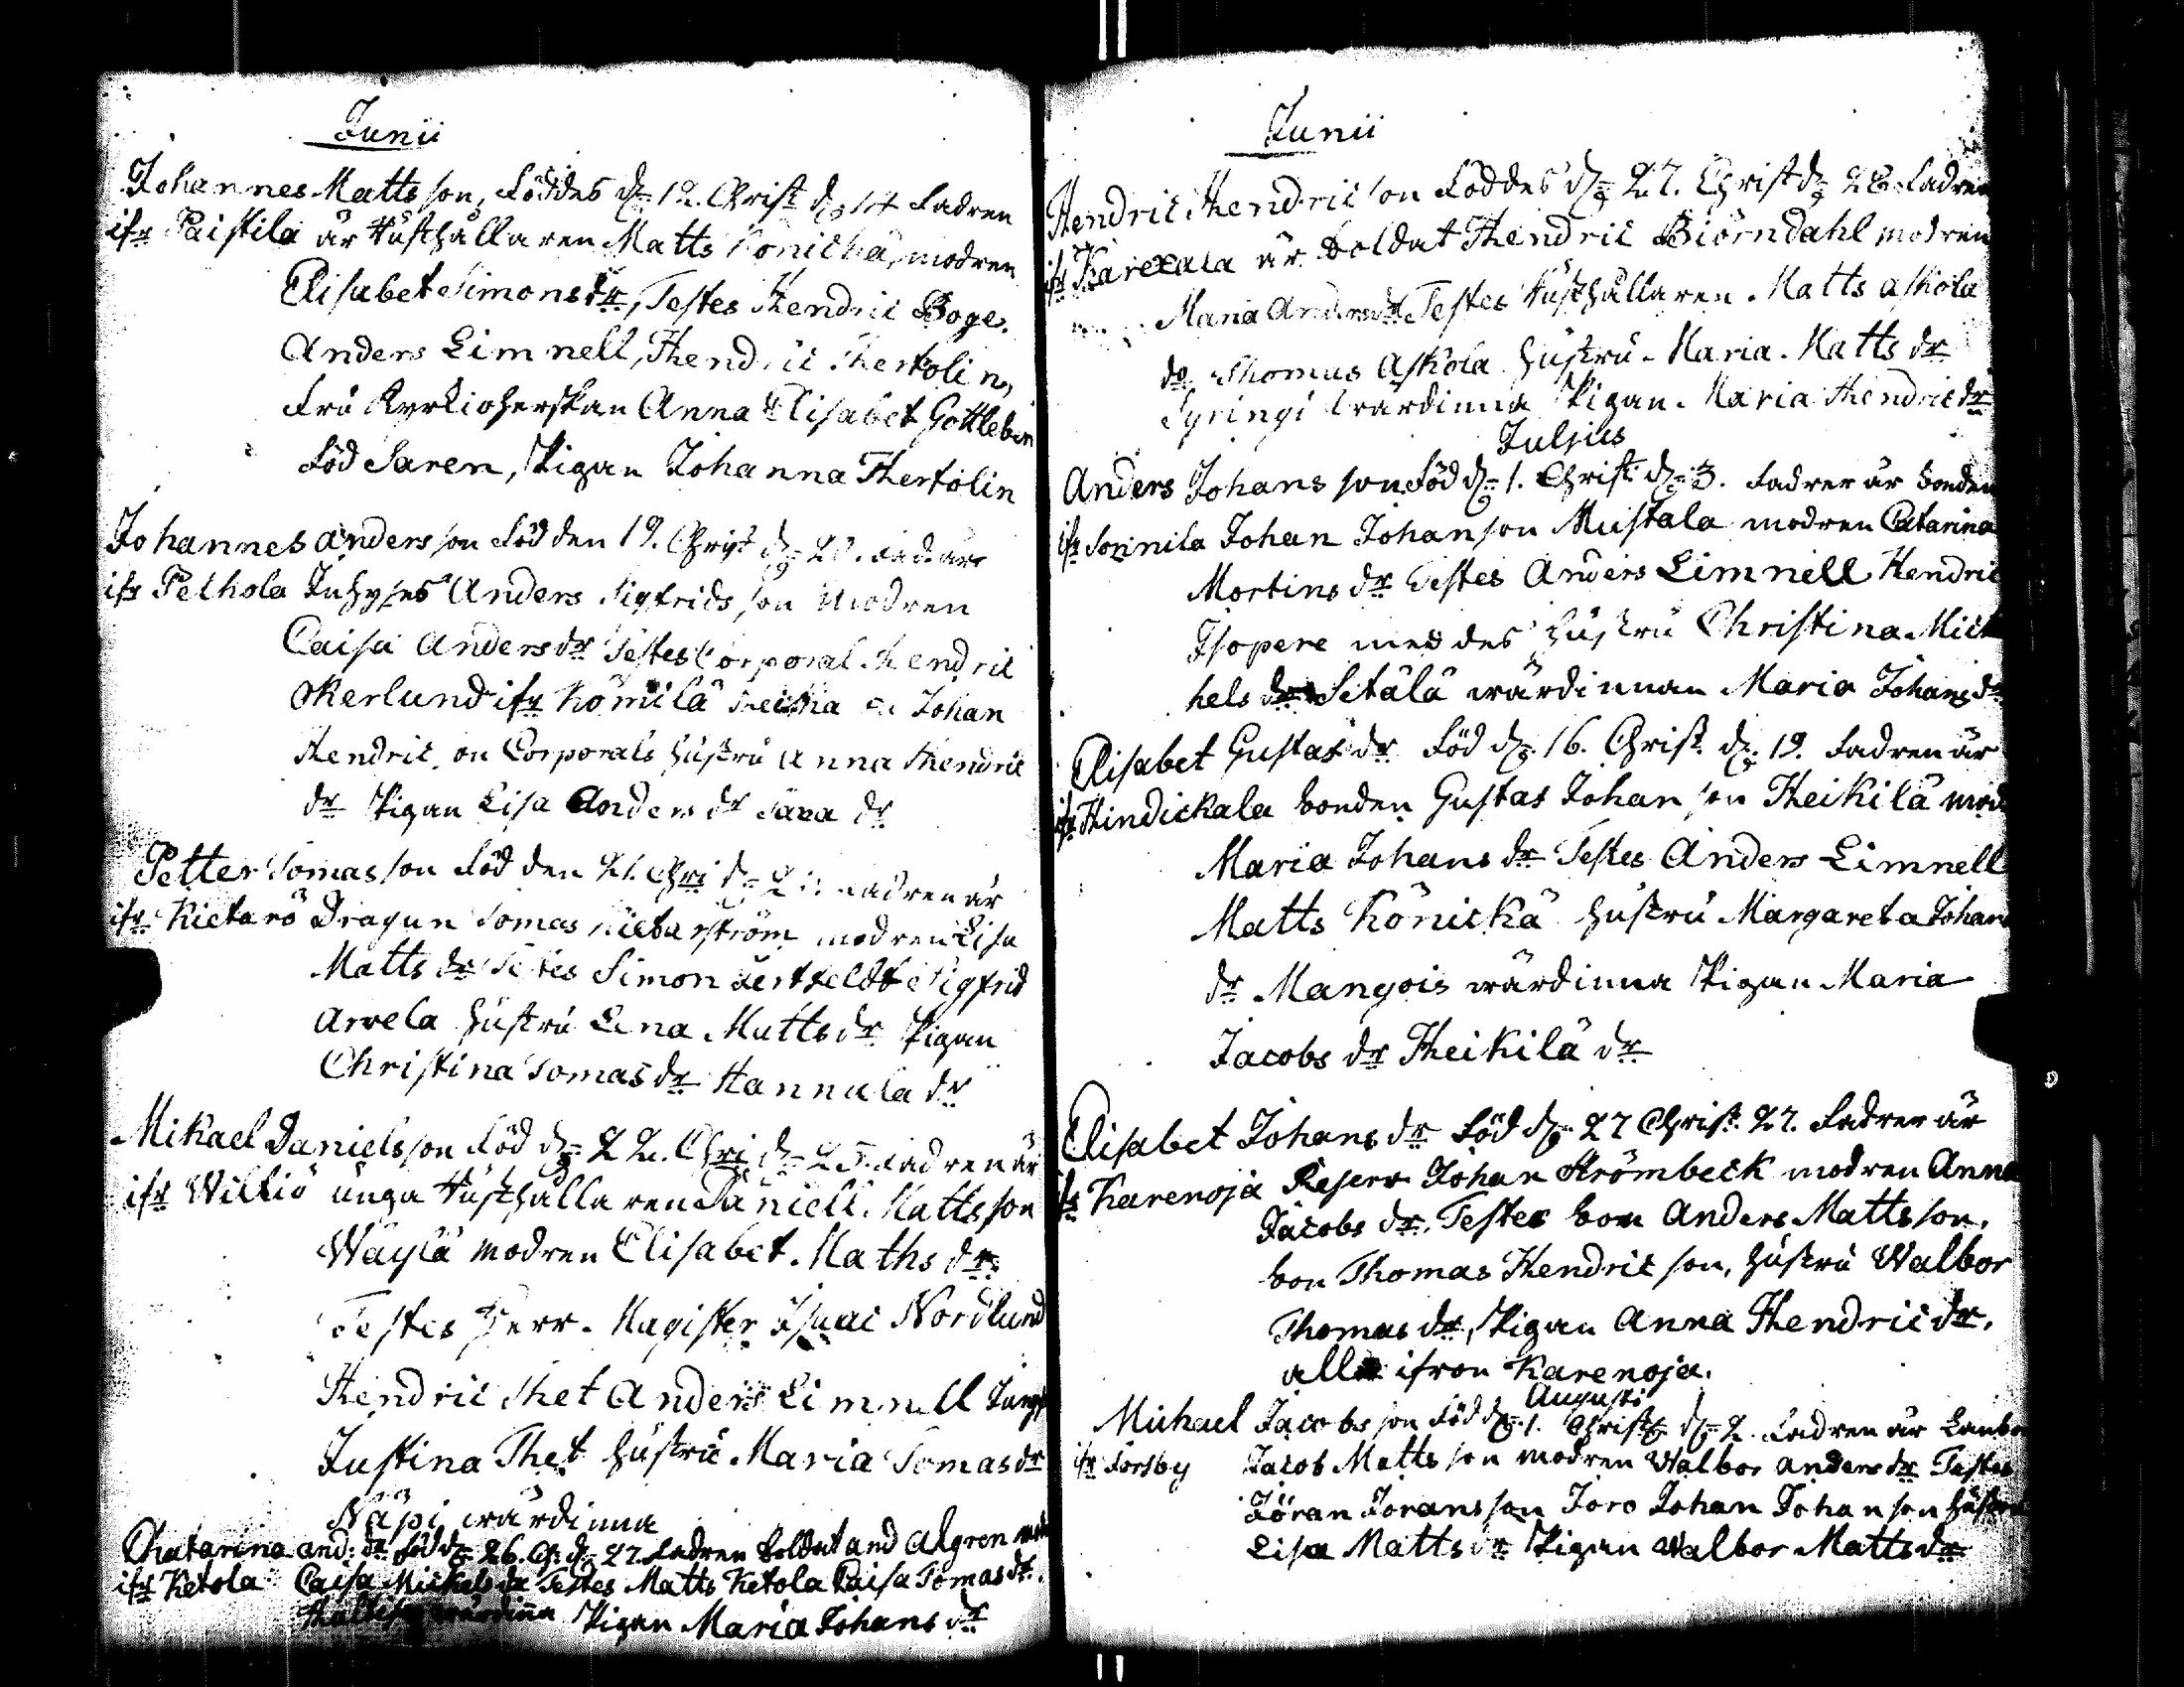 Junii
Johannes Mattsson, föddes dn 12. Christ dn 14 fadren
ifr Paistila är Rusthållaren Matts Könickä, modren
Elisabet Simons dr, Testes Hendric Boge,
Anders Limnell, Hendric Hertolin,
fru Kyrkioherskan Anna Elisabet Gottleben
född Saren, Pigan Johanna Hertolin
Johannes Andersson född den 19. Christ dn 20. fad. är
ifr Pelhola Inhyses Anders Sigfridsson modren
Caisa Anders dr Testes Corporal Hendric
Åkerlund ifr Kömilä Johan
Hendricson Corporals hustru Anna Hendric
dr Pigan Lisa Anders dr dr
Petter Tomasson född den 21. Chri dn fadren är
ifr Kietarö Dragun Tomas modren Lisa
Matts dr Testes Simon Sigfrid
Arvela hustru Lena Matts dr Pigan
Christina Tomas dr Hannula dr
Mikael Danielsson född dn 22. Chri dn 25. fadren är
ifr Williö unga Rusthållaren Daniell Mattsson
Wäylä modren Elisabet Maths dr
Testes Herr Magister Isaac Nordlund
Hendric Thet Anders Limnell Jungf
Justina Thet hustru Maria Tomas dr
Näpi wärdinna
Chatarina and: dr född dn 26. Ch. dn 27. fadren Soldat and Algren mod
ifr Ketola Caisa Mickels dr Testes Matts Ketola Caisa Tomas dr.
wärdina Pigan Maria Johans dr
Junii
Hendric Hendricson föddes dn 27. Christ dn 28. fadren
ifr Karexala är Soldat Hendric Biörndahl modren
Maria Anders dr Testes Rusthållaren Matts Askola
do Thomas Askola hustru Maria Matts dr
Syringi wärdinna Pigan Maria Hendric dr
Juljus
Anders Johansson född dn 1. Christ dn 3. fadren är bonden
ifr Sonnila Johan Johansson Mustala modren Catarina
Mortins dr Testes Anders Limnell Hendric
Isopere med des hustru Christina Mick
hels dr Setälä wärdinnan Maria Johans dr
Elisabet Gustas dr född dn 16. Christ dn 19. fadren är
ifr Hindickala bonden Gustas Johanson Heikilä mod
Maria Johans dr Testes Anders Limnell
Matts Könickä hustru Margareta Johan
dr Mangois wärdinna Pigan Maria
Jacobs dr Heikilä dr
Elisabet Johans dr född dn 27 Christ 27. fadren är
ifr Karenoja Reserv Johan Strömbeck modren Anna
Jacobs dr. Testes bon Anders Mattsson.
bon Thomas Hendricson, hustru Walbor
Thomas dr, Pigan Anna Hendric dr.
alla ifron Karenoja.
Augusti
Michael Jacobsson född dn 1. Christ dn 2. fadren är Lanbo
ifr Torsby Jacob Mattsson modren Walbor anders dr Testes
Jöran Joransson Joro Johan Johanson hustru
Lisa Matts dr Pigan Walbor Matts dr